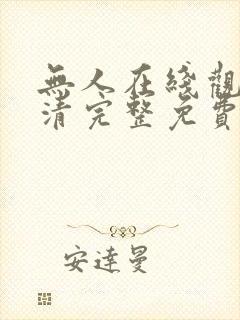 無人在綫觀
清完整免費
安達曼